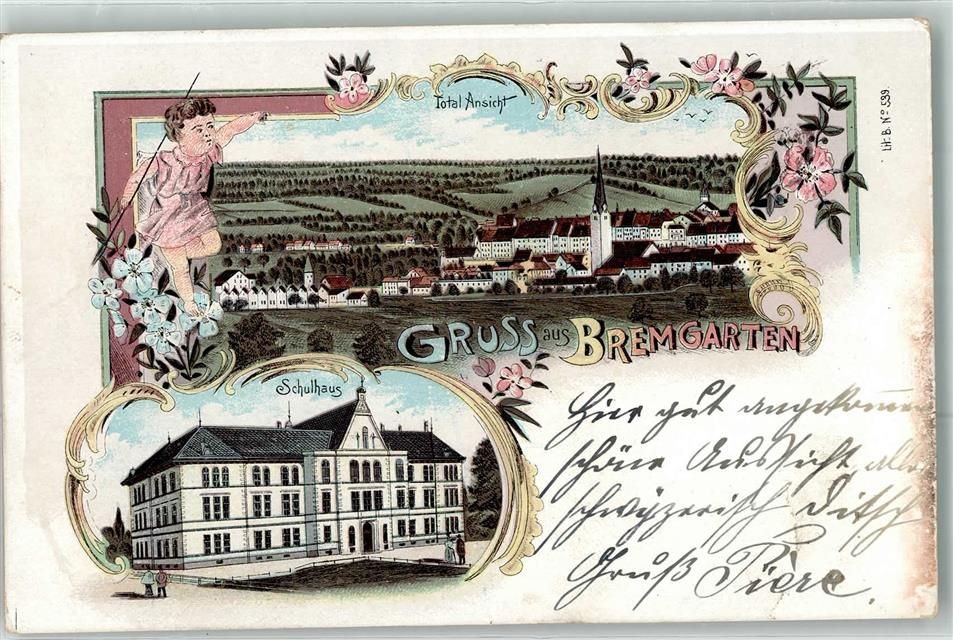 Total Ansicht
Lit. B. No 539.
GRUSS aus BREMGARTEN
Schulhaus
Hier gut angekommen
schöne Aussicht, alles
schwÿzerisch Ditsch
Gruß Pière.